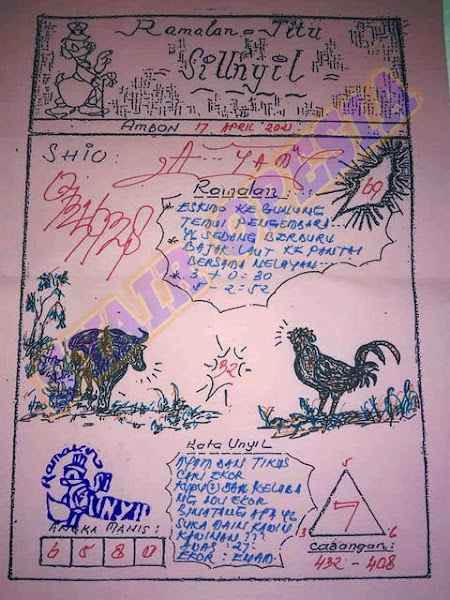 Ramalan - Jitu
Si Unyil
AMBON 17 APRIL 2021
SHIO :
A... YAM
Ramalan
69
* ESKIMO KE GUNUNG
TEMUI PENGEMBARA..
YG SEDANG BERBURU
* BAJAK LAUT KE PANTAI
BERSAMA NELAYAN...
* 3 + 0 = 30
- 2 = 52
32
Kata UnyiL
AYAM DAN TIKUS
CARI EKOR
KUPU(2) DAN KELABA
NG ADU EKOR
BINATANG APA YG
SUKA MAIN KAWIN
KAWINAN ???
AWAS : 27:
EKOR : ENAM.
Ramalan
UNYIL
ANGKA MANIS :
6 5 8 0
5
7
3 6
Cabangan :
432 - 408